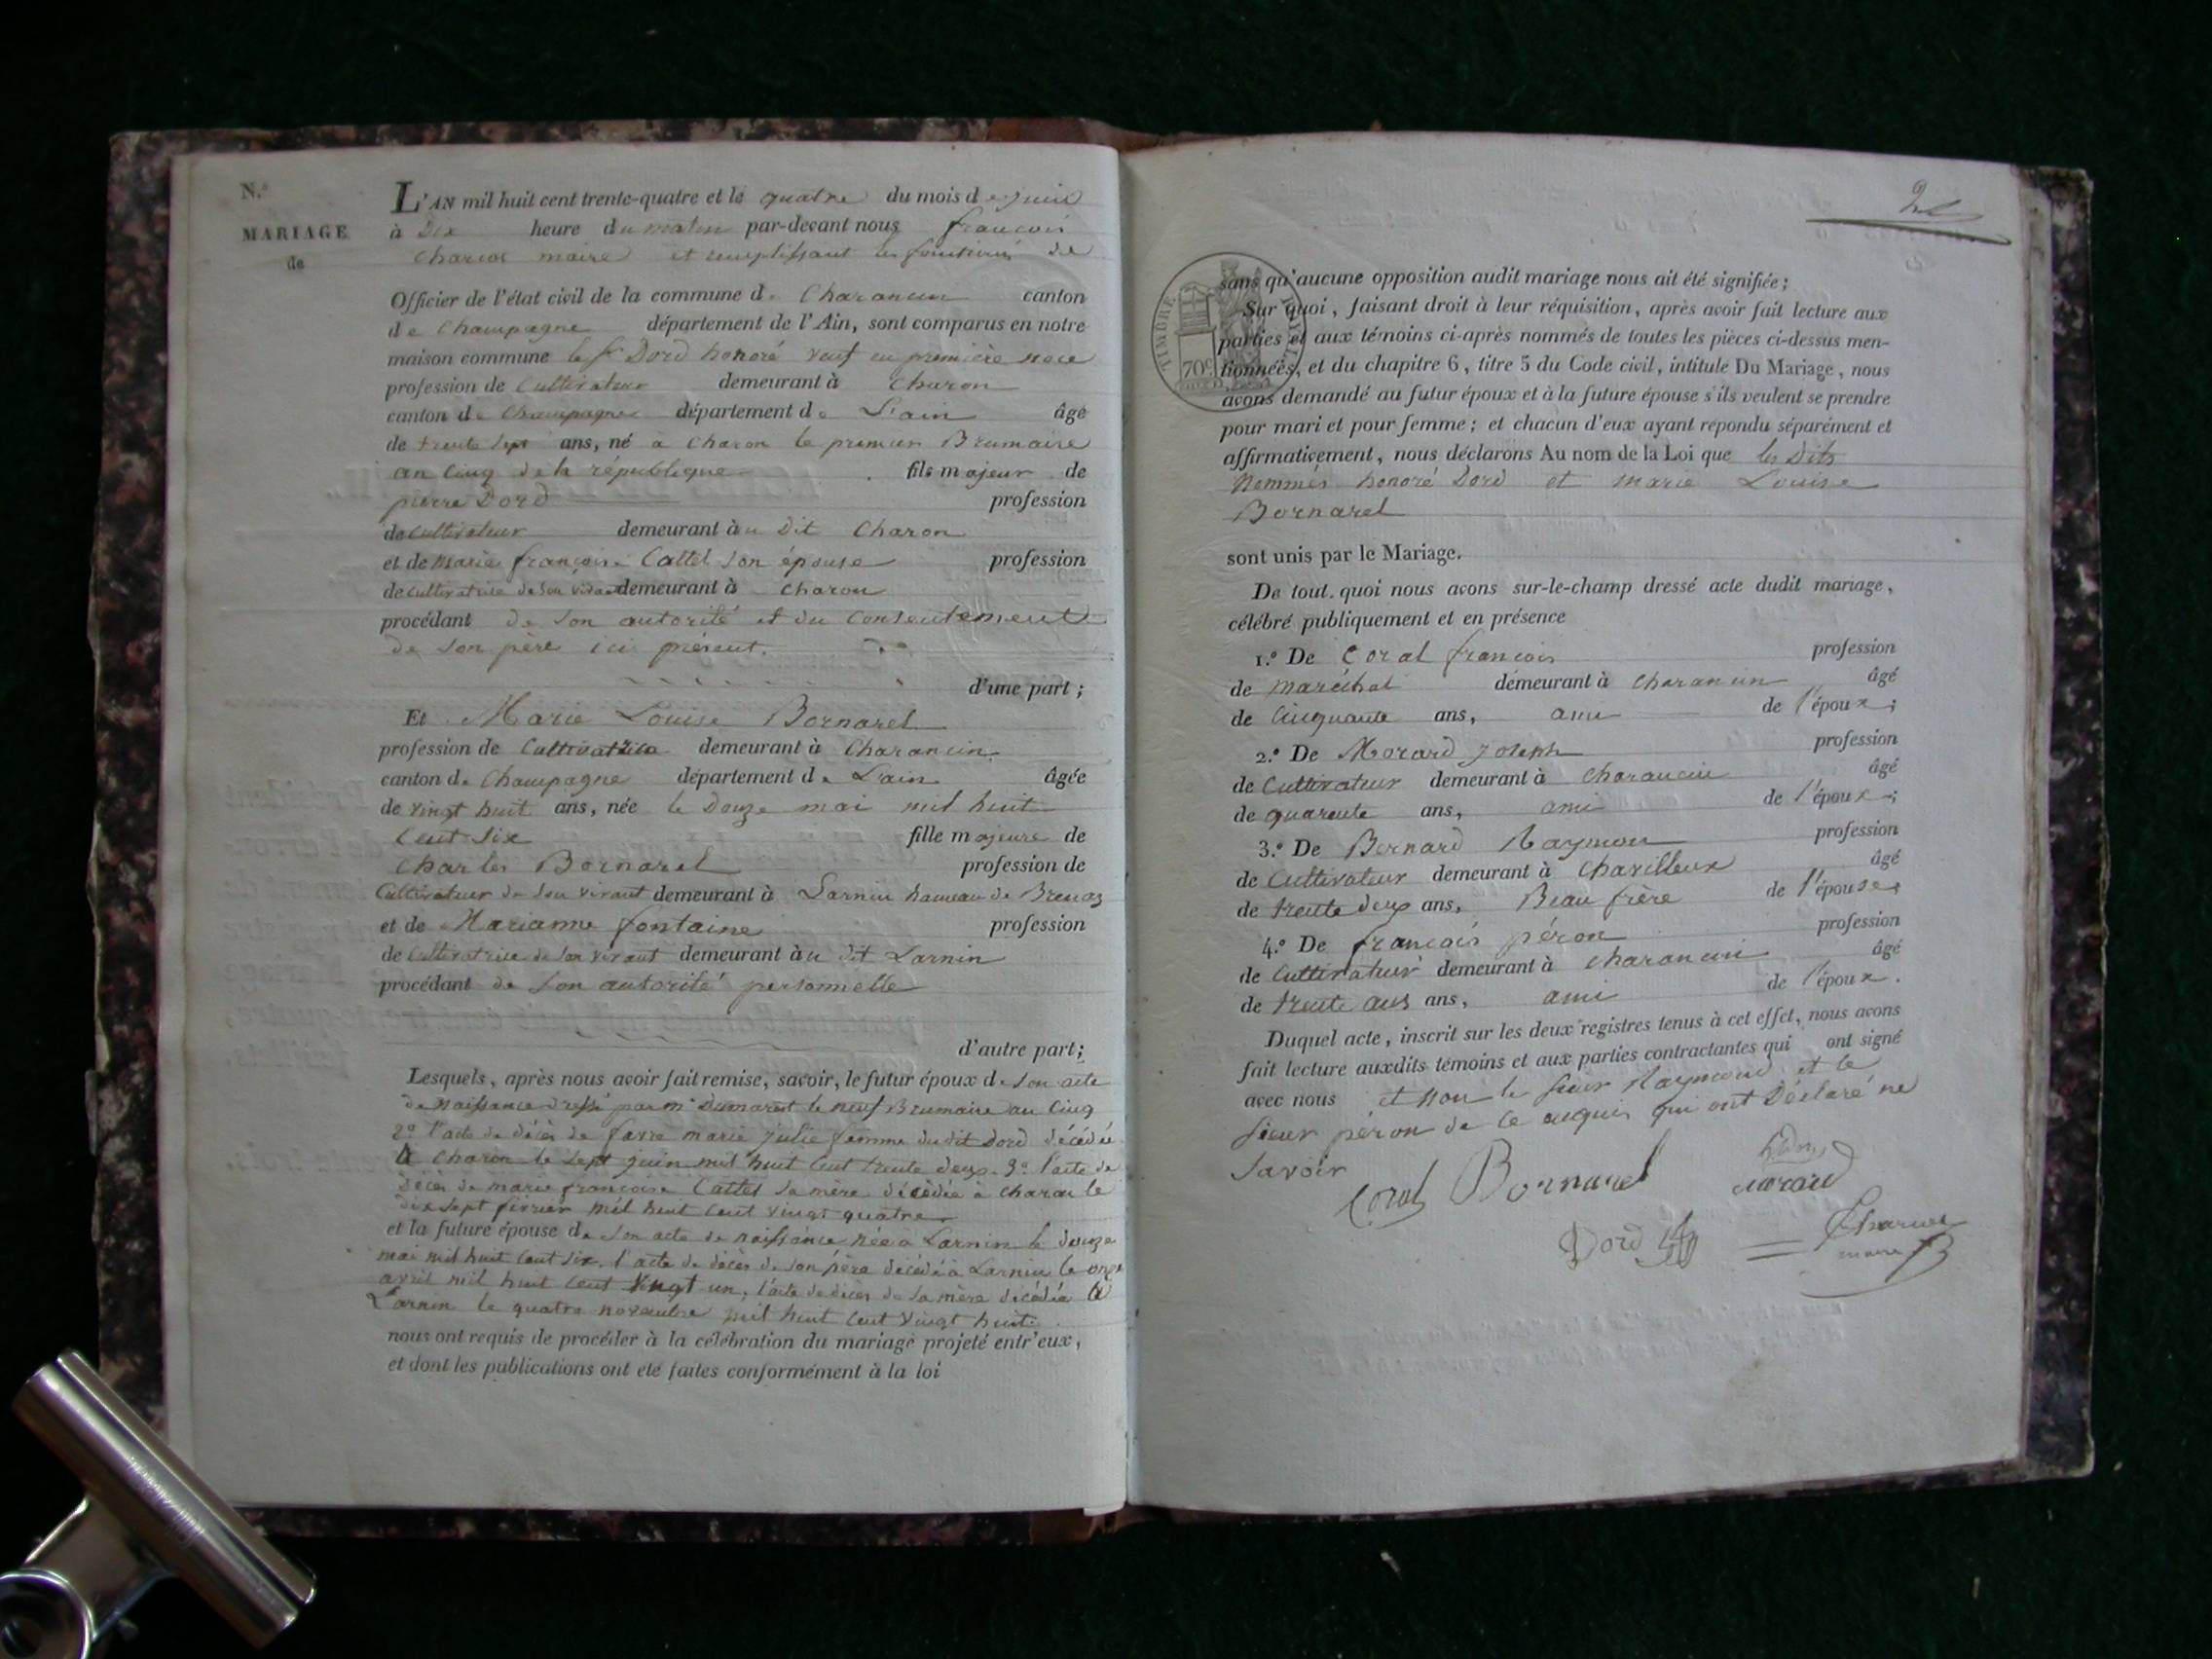 N.º
MARIAGE
de
L'AN mil huit cent trente-quatre et le quatre du mois de juin
à Dix heure du matin par-devant nous françois
Charvet maire et remplissant les fonctions de
Officier de l'état civil de la commune de Charancin canton
de Champagne département de l'Ain, sont comparus en notre
maison commune le sr Dord honoré veuf en première noce
profession de Cultivateur demeurant à Charon
canton de Champagne département de L'ain âgé
de trente sept ans, né à Charon le premier Brumaire
an Cinq de la république fils majeur de
pierre Dord profession
de Cultivateur demeurant au Dit Charon
et de Marie françoise Cattel son épouse profession
de cultivatrice de son vivant demeurant à Charon
procédant de son autorité et du Consentement
de son père ici présent.
d'une part ;
Et Marie Louise Bornarel
profession de Cultivatrice demeurant à Charancin
canton de Champagne département de L'ain âgée
de vingt huit ans, née le Douze mai mil huit
Cent Six fille majeure de
Charles Bornarel profession de
Cultivateur de son vivant demeurant à Larnin hameau de Brenaz
et de Marianne fontaine profession
de Cultivatrice de son vivant demeurant au dit Larnin
procédant de son autorité personnelle
d'autre part;
Lesquels, après nous avoir fait remise, savoir, le futur époux de son acte
de naissance dressé par mr le neuf Brumaire an Cinq
2º l'acte de décès de favre marie julie femme du dit Dord décédée
à Charon le sept juin mil huit Cent trente deux. 3º l'acte de
décès de marie françoise Cattel sa mère décédée à Charon le
dix sept février mil huit Cent vingt quatre
et la future épouse de son acte de naissance née à Larnin le douze
mai mil huit Cent six. l'acte de décès de son père décédé à Larnin le onze
avril mil huit Cent Vingt un, l'acte de décès de sa mère décédée à
Larnin le quatre novembre mil huit Cent vingt huit.
nous ont requis de procéder à la célébration du mariage projeté entr'eux,
et dont les publications ont été faites conformément à la loi
2
TIMBRE ROYAL
70c
sans qu'aucune opposition audit mariage nous ait été signifiée ;
Sur quoi, faisant droit à leur réquisition, après avoir fait lecture aux
parties et aux témoins ci-après nommés de toutes les pièces ci-dessus men-
tionnées, et du chapitre 6, titre 5 du Code civil, intitulé Du Mariage, nous
avons demandé au futur époux et à la future épouse s'ils veulent se prendre
pour mari et pour femme ; et chacun d'eux ayant répondu séparément et
affirmativement, nous déclarons Au nom de la Loi que les Dits
Nommés honoré Dord et marie Louise
Bornarel
sont unis par le Mariage.
De tout quoi nous avons sur-le-champ dressé acte dudit mariage,
célébré publiquement et en présence
1.º De Coral françois profession
de Maréchal demeurant à Charancin âgé
de Cinquante ans, ami de l'époux ;
2.º De Morard Joseph profession
de Cultivateur demeurant à Charancin âgé
de quarente ans, ami de l'époux ;
3.º De Bernard Raymon profession
de Cultivateur demeurant à Chavilleux âgé
de trente deux ans, Beau frère de l'épouse ;
4.º De françois péron profession
de Cultivateur demeurant à Charancin âgé
de trente ans ans, ami de l'époux.
Duquel acte, inscrit sur les deux registres tenus à cet effet, nous avons
fait lecture auxdits témoins et aux parties contractantes qui ont signé
avec nous et non le sieur Raymond et le
sieur péron de ce enquis qui ont Déclaré ne
savoir
Coral Bornarel Morard
Dord Charvet
maire